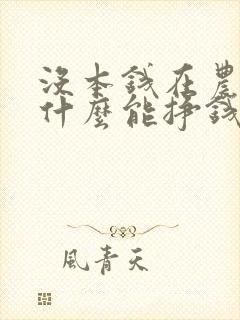 沒本錢在農
什麼能掙錢
風青天